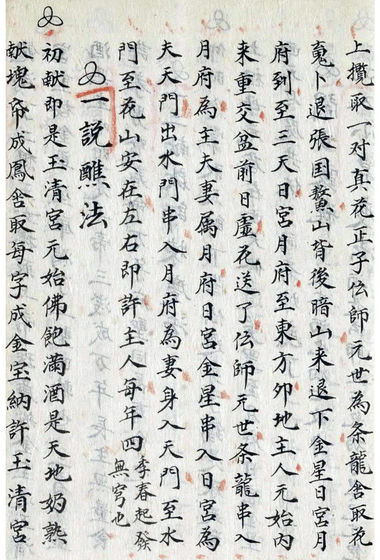 上攬取一对真花正子伝師元世為条龍舍取花
蒐卜退張国鰲山背後暗山来退下金星日宮月
府到至三天日宮月府至東方夘地主人元始内
来重交盆前日虚花送了伝師元世条龍串入
月府為主夫妻属月府日宮金星串入日宮為
夫天門出水門串入月府為妻身入天門至水
門至花山安在左右即許主人每年四季春起發
無穷也
一說醮法
初献即是玉清宮元始佛飽滿酒是天地奶熟
献塊帛成鳳舍取每字成金宝納許玉清宮